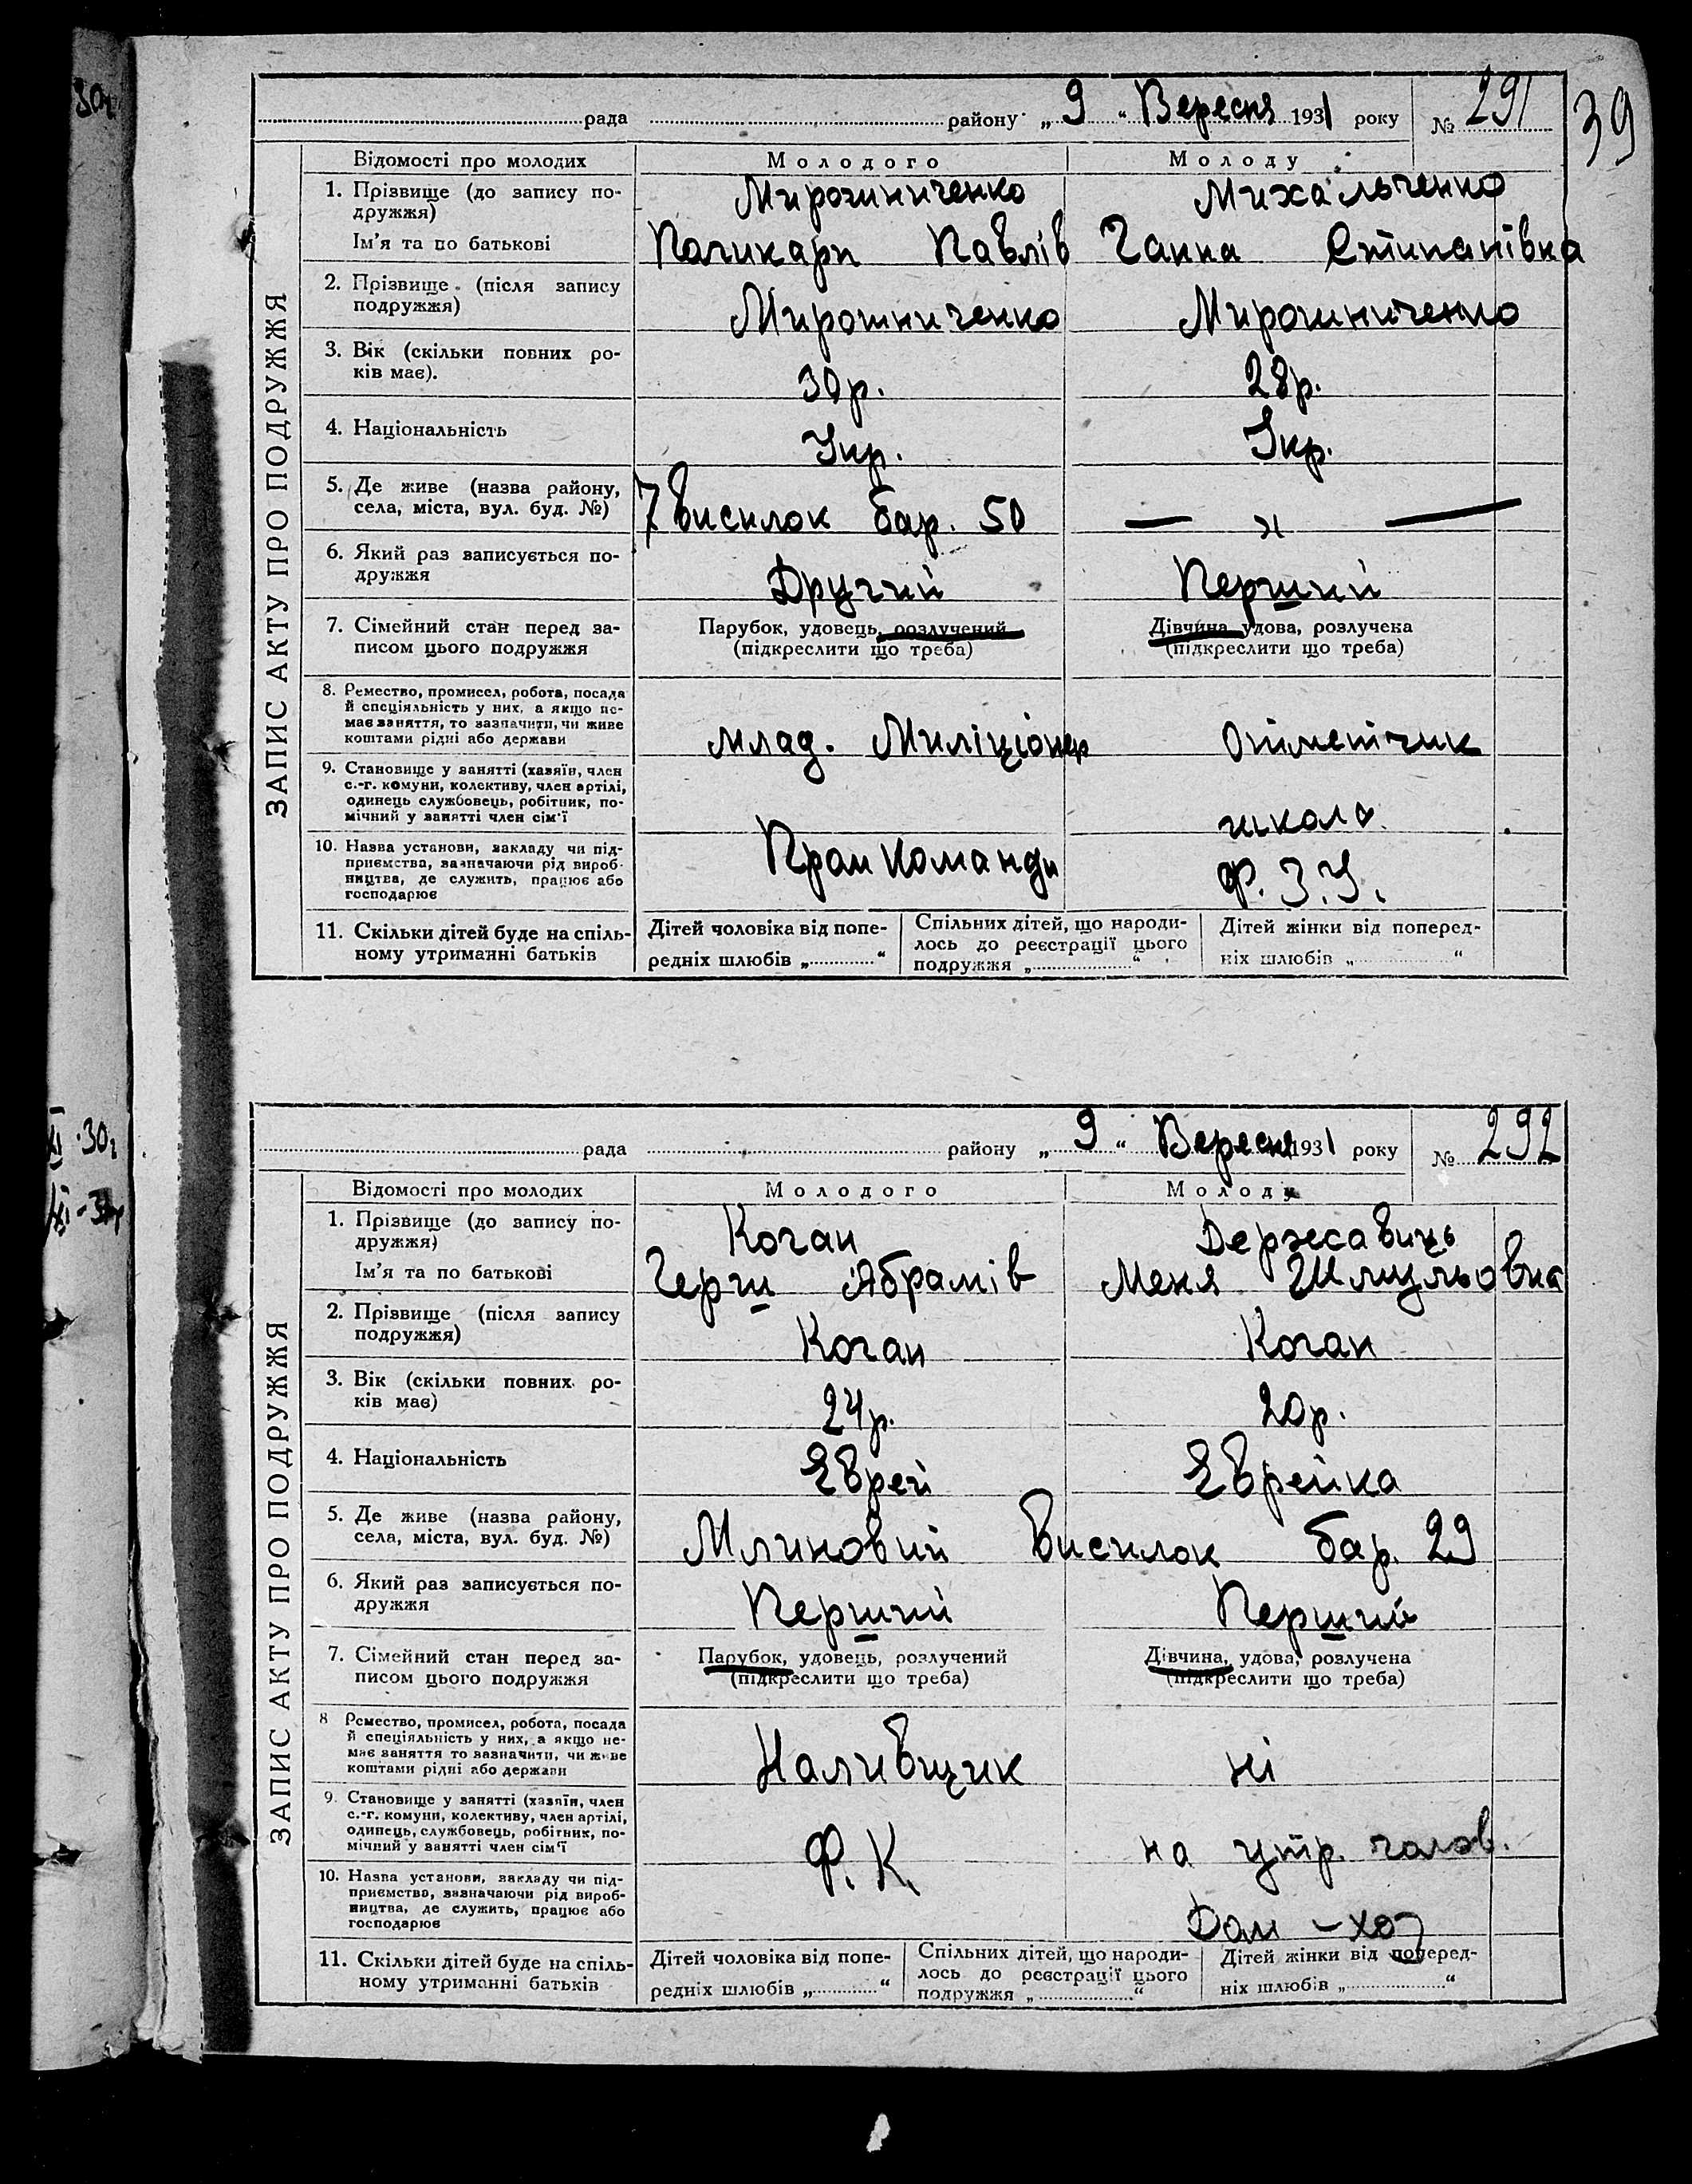 30г
39
рада района „ 9 “ Вересня 1931 року № 291
ЗАПИС АКТУ ПРО ПОДРУЖЖЯ
Відомості про молодих Молодого Молоду
1. Прізвище (до запису по-
дружжя) Мирошниченко Михальченко
Ім'я та по батькові Поликарп Павлів Ганна Стипанівна
2. Прізвище (після запису
подружжя) Мирошниченко Мирошниченко
3. Вік (скільки повних ро-
ків має). 30р. 28р.
4. Національність Укр. Укр.
5. Де живе (назва району,
села, міста, вул. буд. №) 7 висилок бар. 50 — „ —
6. Який раз записується по-
дружжя Другий Перший
7. Сімейний стан перед за-
писом цього подружжя
Парубок, удовець, розлучений
(підкреслити що треба)
Дівчина удова, розлучена
(підкреслити що треба)
8. Ремество, промисел, робота, посада
й спеціяльність у них, а якщо не-
має заняття, то зазначити, чи живе
коштами рідні або держави
млад. Миліціонер
9. Становище у занятті (хазяїн, член
с.-г. комуни, колективу, член артілі,
одинець службовець, робітник, по-
мічний у занятті член сім'ї
школа
10. Назва установи, закладу чи під-
приємства, зазначаючи рід вироб-
ництва, де служить, працює або
господарює
Пром команди Ф.З.У.
11. Скільки дітей буде на спіль-
ному утриманні батьків
Дітей чоловіка від попе-
редніх шлюбів „ “
Спільних дітей, що народи-
лось до реєстрації цього
подружжя „ “
Дітей жінки від поперед-
ніх шлюбів „ “
рада району „ 9 “ Вересня 1931 року № 292
ЗАПИС АКТУ ПРО ПОДРУЖЖЯ
Відомості про молодих Молодого Молоду
1. Прізвище (до запису по-
дружжя) Коган Державиць
Ім'я та по батькові Герш Абрамів Меня Шмульовна
2. Прізвище (після запису
подружжя) Коган Коган
3. Вік (скільки повних ро-
ків має) 24р. 20р.
4. Національність Еврей Еврейка
5. Де живе (назва району,
села, міста, вул. буд. №) Млиновий висилок бар. 29
6. Який раз записується по-
дружжя Перший Перший
7. Сімейний стан перед за-
писом цього подружжя
Парубок, удовець, розлучений
(підкреслити що треба)
Дівчина, удова, розлучена
(підкреслити що треба)
8 Ремество, промисел, робота, посада
й спеціяльність у них, а якщо не-
має заняття то зазначити, чи живе
коштами рідні або держави
Наливщик ні
9. Становище у занятті (хазяїн, член
с.-г. комуни, колективу, член артілі,
одинець, службовець, робітник, по-
мічний у занятті член сім'ї
Ф. К. на утр. чолов.
10. Назва установи, закладу чи під-
приємства, зазначаючи рід вироб-
ництва, де служить, працює або
господарює
Дом-хоз
11. Скільки дітей буде на спіль-
ному утриманні батьків
Дітей чоловіка від попе-
редніх шлюбів „ “
Спільних дітей, що народи-
лось до реєстрації цього
подружжя „ “
Дітей жінки від поперед-
ніх шлюбів „ “